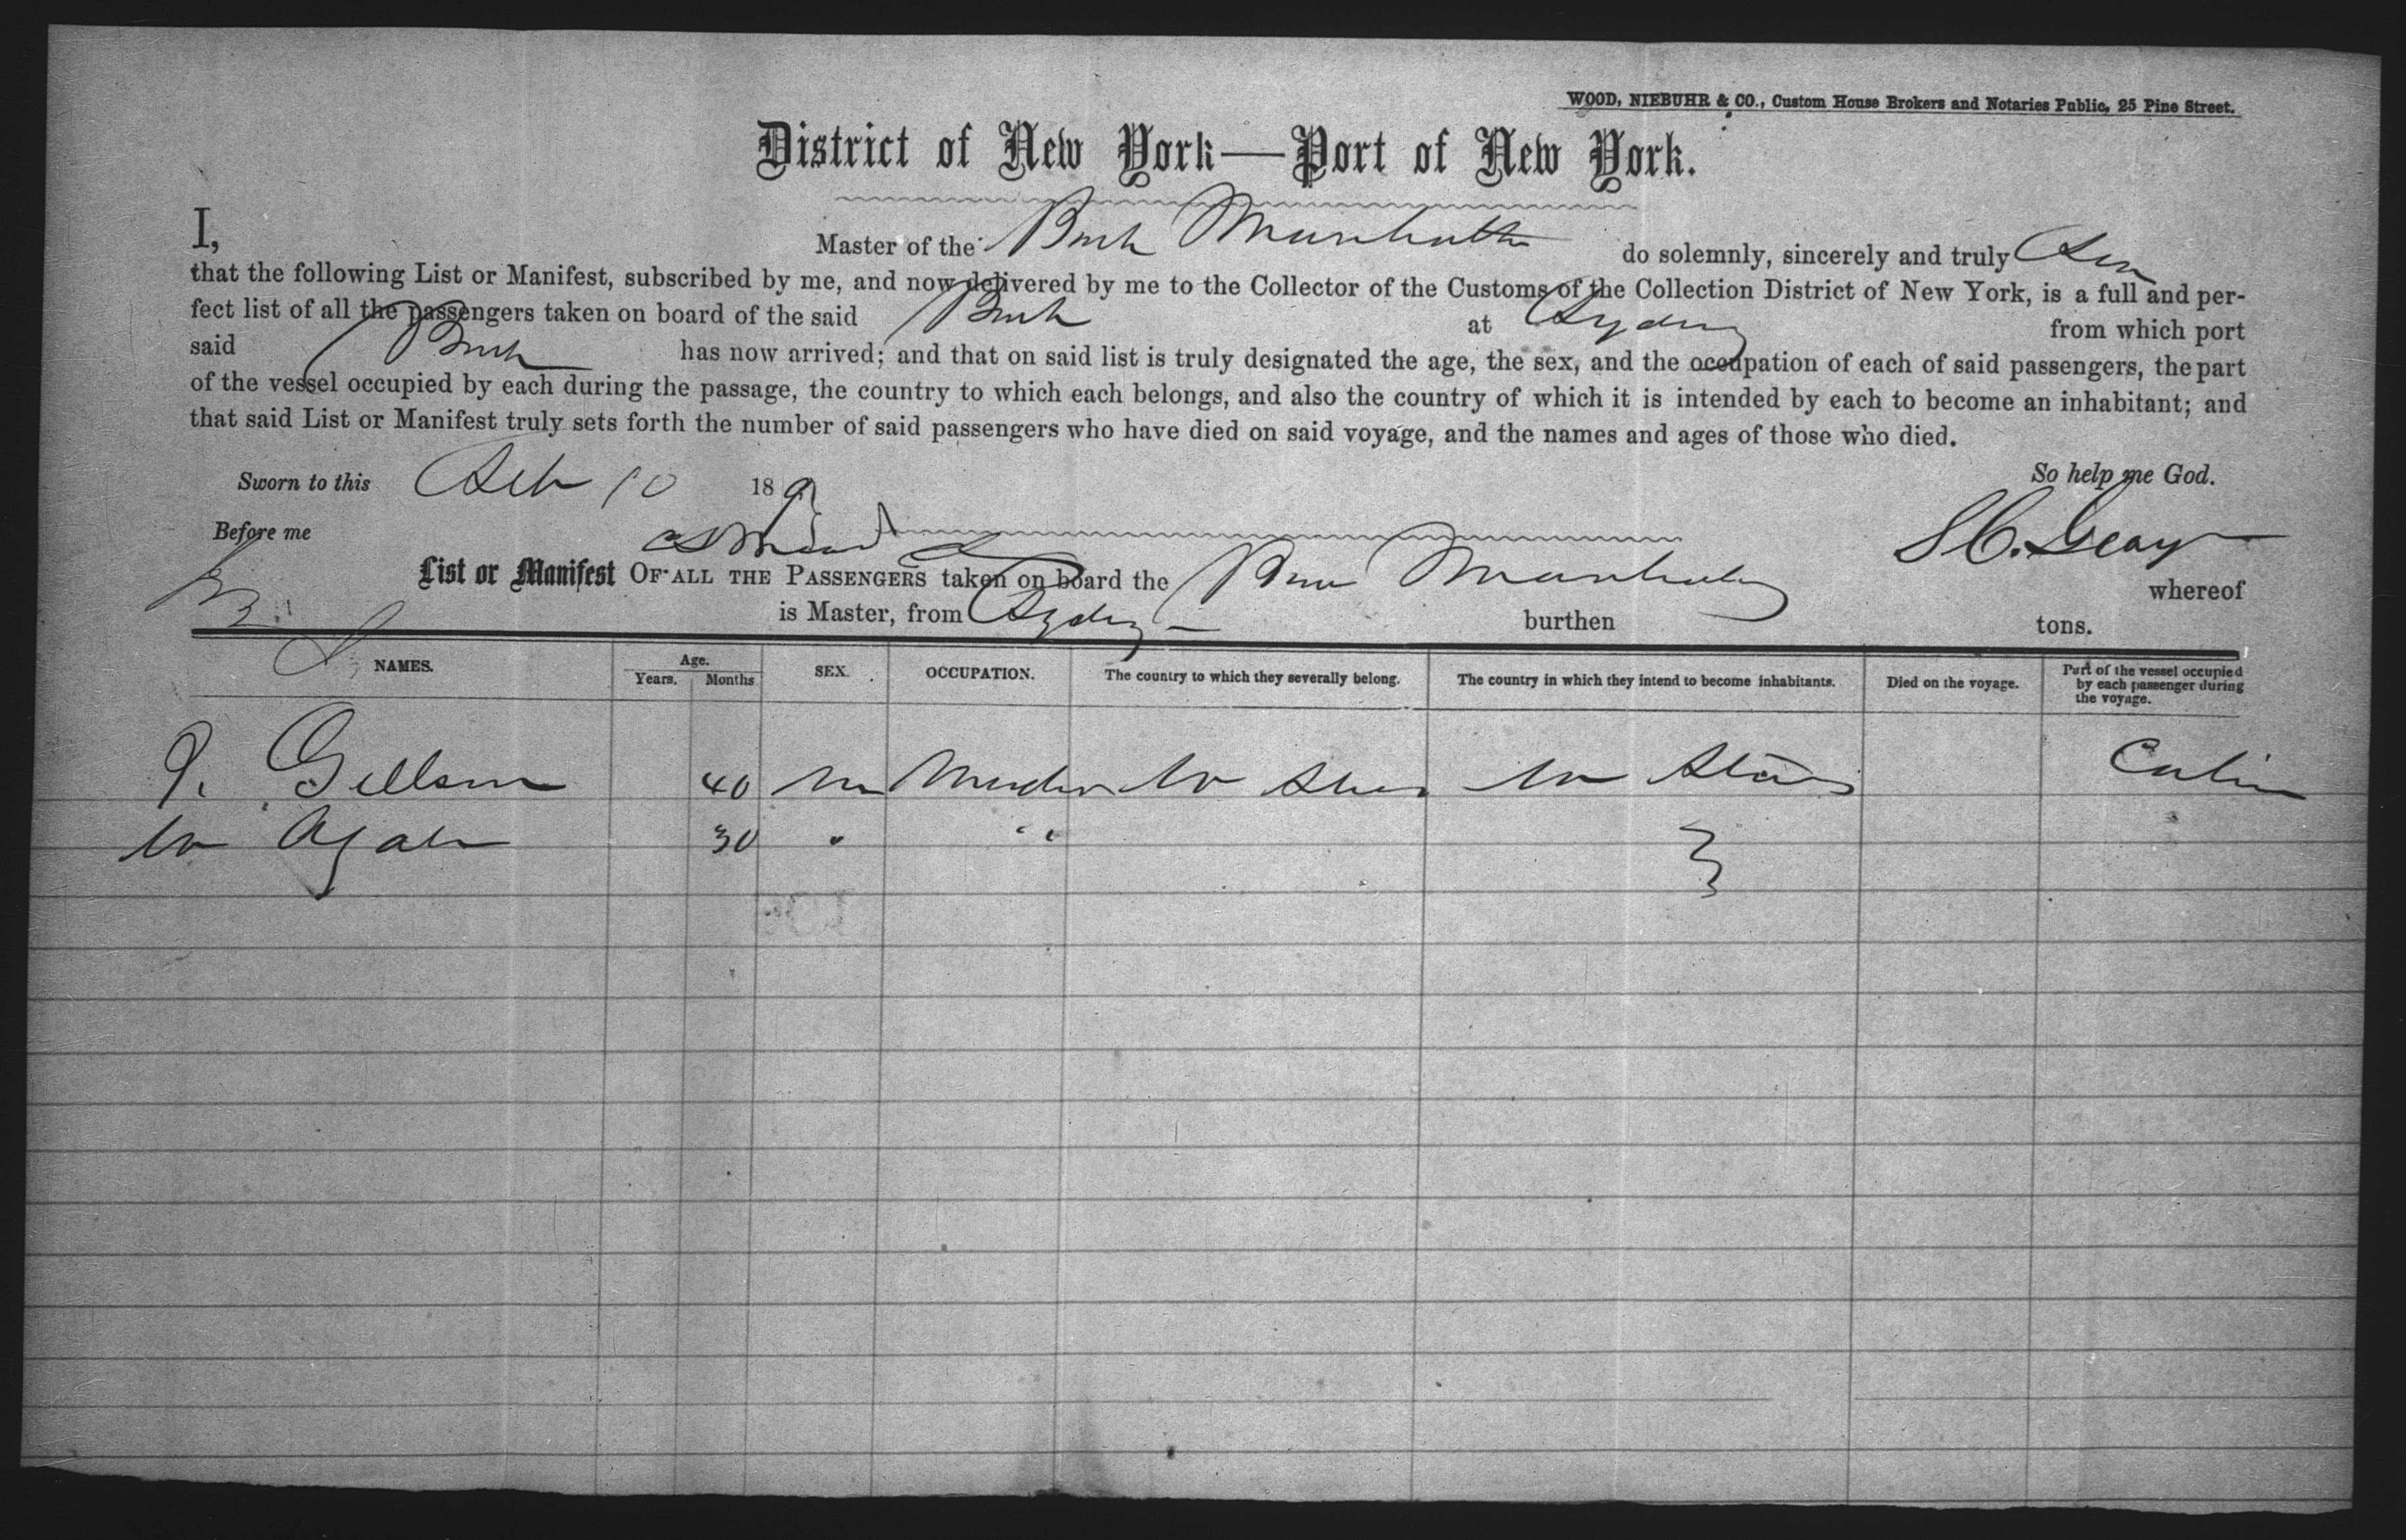 WOOD, NIEBUHR & CO., Custom House Brokers and Notaries Public, 25 Pine Street.
District of New York—Port of New York.
I, Master of the do solemnly, sincerely and truly
that the following List or Manifest, subscribed by me, and now delivered by me to the Collector of the Customs of the Collection District of New York, is a full and per-
fect list of all the passengers taken on board of the said Bark at Sydney from which port
said Bark has now arrived; and that on said list is truly designated the age, the sex, and the occupation of each of said passengers, the part
of the vessel occupied by each during the passage, the country to which each belongs, and also the country of which it is intended by each to become an inhabitant; and
that said List or Manifest truly sets forth the number of said passengers who have died on said voyage, and the names and ages of those who died.
Sworn to this Feb 10 189 So help me God.
Before me
List or Manifest OF ALL THE PASSENGERS taken on board the whereof
is Master, from Sydney burthen tons.
NAMES. Age. Years. Months SEX. OCCUPATION. The country to which they severally belong. The country in which they intend to become inhabitants. Died on the voyage. Part of the vessel occupied by each passenger during the voyage.
40 m States Cabin
30 " "